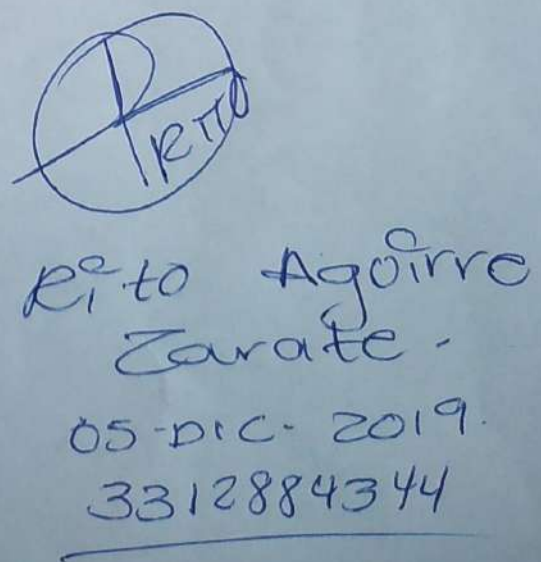 RITO
Rito Aguirre
Zarate.
05-DIC-2019.
3312884344